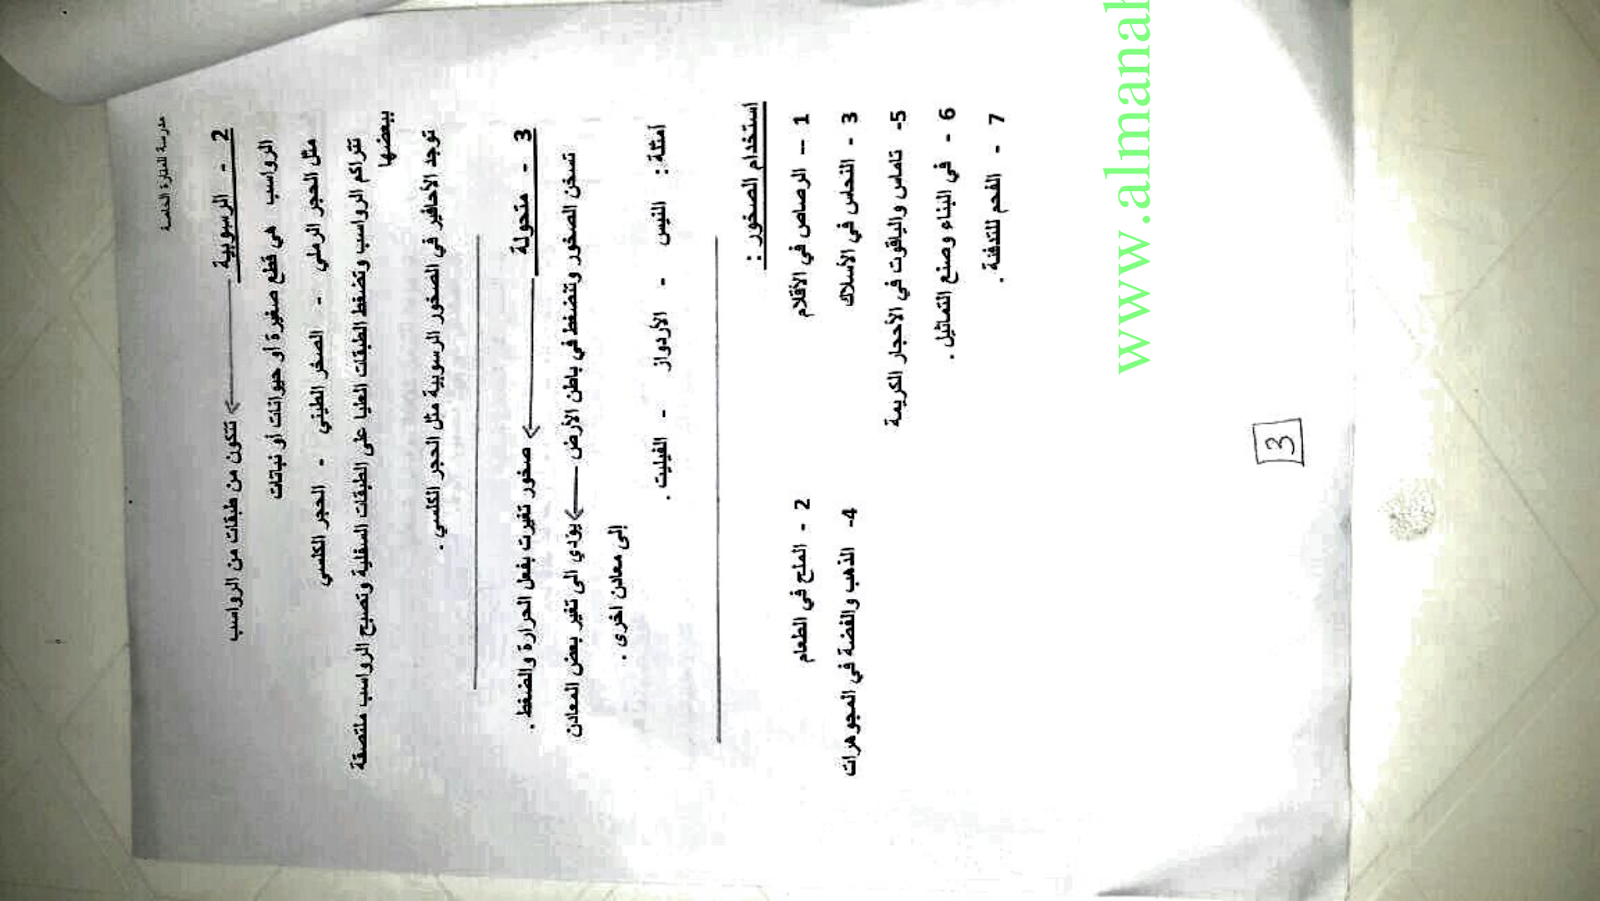 مدرسة المنارة الخاصة
2 - الرسوبية ← تتكون من طبقات من الرواسب
الرواسب هي قطع صغيرة أو حيوانات أو نباتات
مثل الحجر الرملي - الصخر الطيني - الحجر الكلسي
تتراكم الرواسب وتضغط الطبقات العليا على الطبقات السفلية وتصبح الرواسب ملتصقة
ببعضها
توجد الأحافير في الصخور الرسوبية مثل الحجر الكلسي .
3 - متحولة ← صخور تغيرت بفعل الحرارة والضغط .
تسخن الصخور وتنضغط في باطن الأرض ← يؤدي الى تغير بعض المعادن
إلى معادن اخرى .
أمثلة : النيس - الأردواز - الفيليت .
استخدام الصخور :
1 – الرصاص في الأقلام 2 - الملح في الطعام
3 - النحاس في الأسلاك 4- الذهب والفضة في المجوهرات
5- تلماس والياقوت في الأحجار الكريمة
6 - في البناء وصنع التماثيل .
7 - الفحم للتدفئة .
3
www.almanah